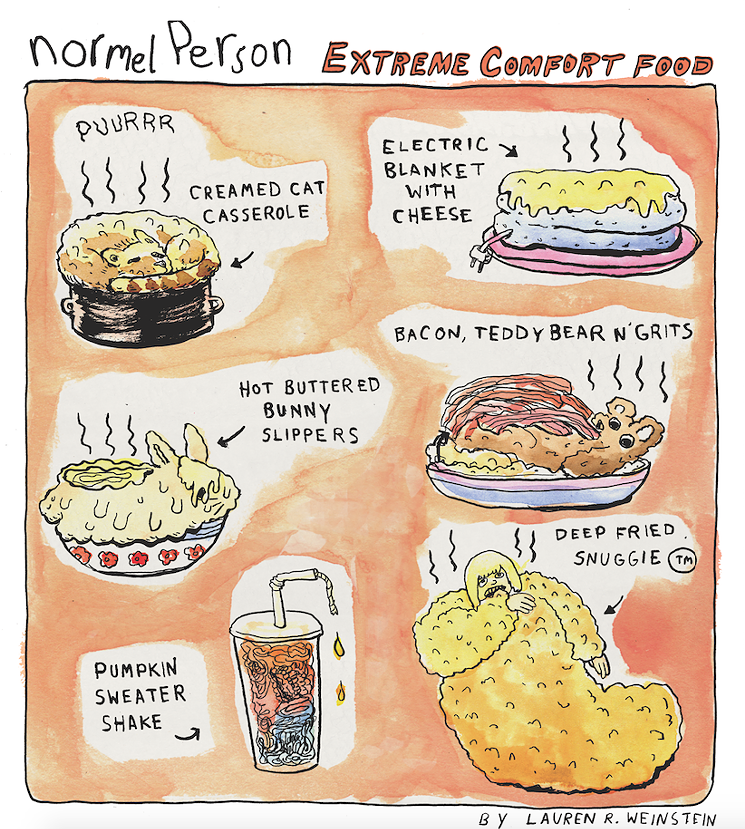 normel Person
EXTREME COMFORT FOOD
PUURRR
CREAMED CAT
CASSEROLE
ELECTRIC
BLANKET
WITH
CHEESE
BACON, TEDDY BEAR N' GRITS
HOT BUTTERED
BUNNY
SLIPPERS
DEEP FRIED
SNUGGIE TM
PUMPKIN
SWEATER
SHAKE
BY LAUREN R. WEINSTEIN